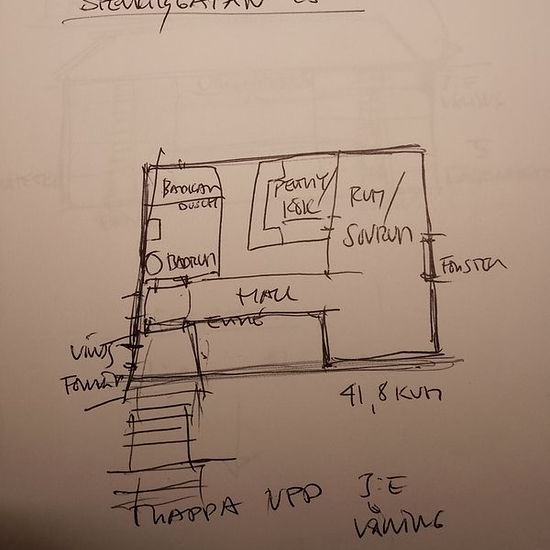 BADKAR
DUSCH
BADRUM
PENTRY/
KÖK
RUM/
SOVRUM
HALL
ENTRÉ
FÖNSTER
VINDS
FÖNSTER
41,8 KVM
TRAPPA UPP 3:E
VÅNING